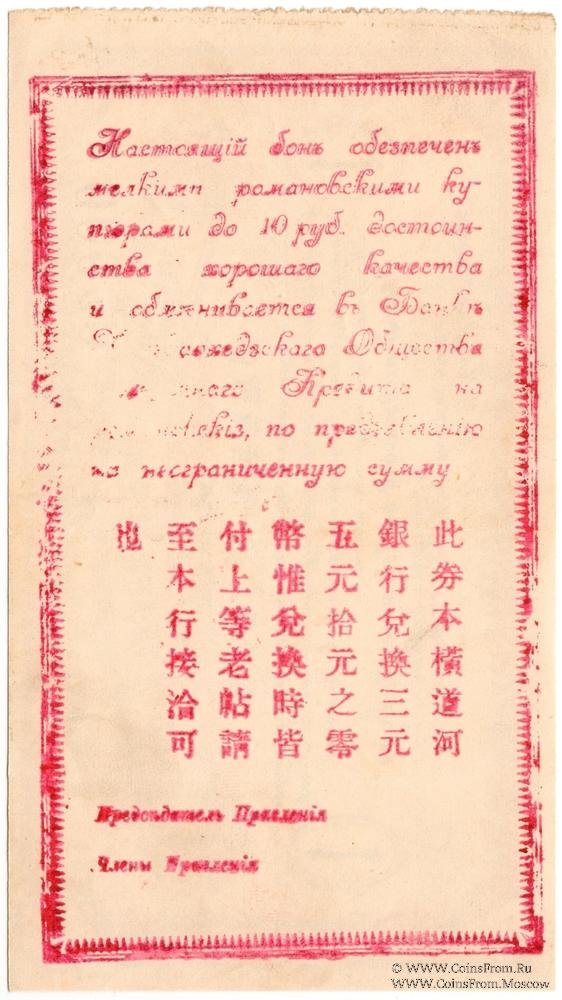 Настоящій бонъ обезпеченъ
мелкими романовскими ку-
пюрами до 10 руб. достоин-
ства хорошаго качества
и обмѣнивается въ Банкѣ
Общества
Кредита на
по предъявленію
на неограниченную сумму
此券本橫道河
銀行兌換三元
五元拾元之零
幣惟兌換時皆
付上等老帖請
至本行接洽可
也
Предсѣдатель Правленія
Члены Правленія
© WWW.CoinsFrom.Ru
WWW.CoinsFrom.Moscow